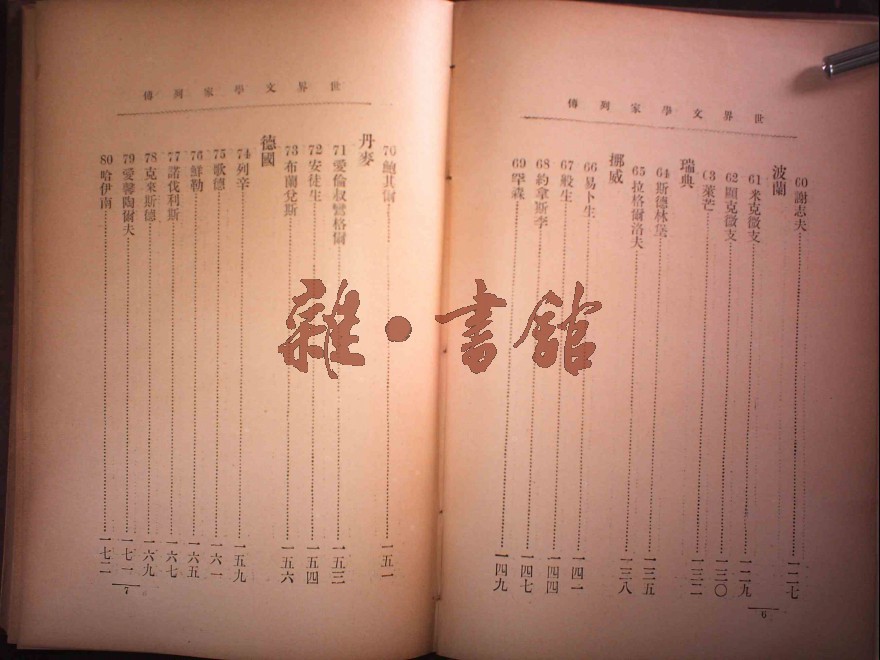 世界文學家列傳
60 謝志夫 一二七
波蘭
61 米克微支 一二九
62 顯克微支 一三〇
63 萊芒 一三二
瑞典
64 斯德林堡 一三五
65 拉格爾洛夫 一三八
挪威
66 易卜生 一四一
67 般生 一四四
68 約拿斯李 一四七
69 罕森 一四九
6
世界文學家列傳
70 鮑其爾 一五一
丹麥
71 愛倫叔鸞格爾 一五三
72 安徒生 一五四
73 布蘭兌斯 一五六
德國
74 列辛 一五九
75 歌德 一六一
76 鮮勒 一六五
77 諾伐利斯 一六七
78 克來斯德 一六九
79 愛馨陶爾夫 一七一
80 哈伊南 一七二
7
雜·書館